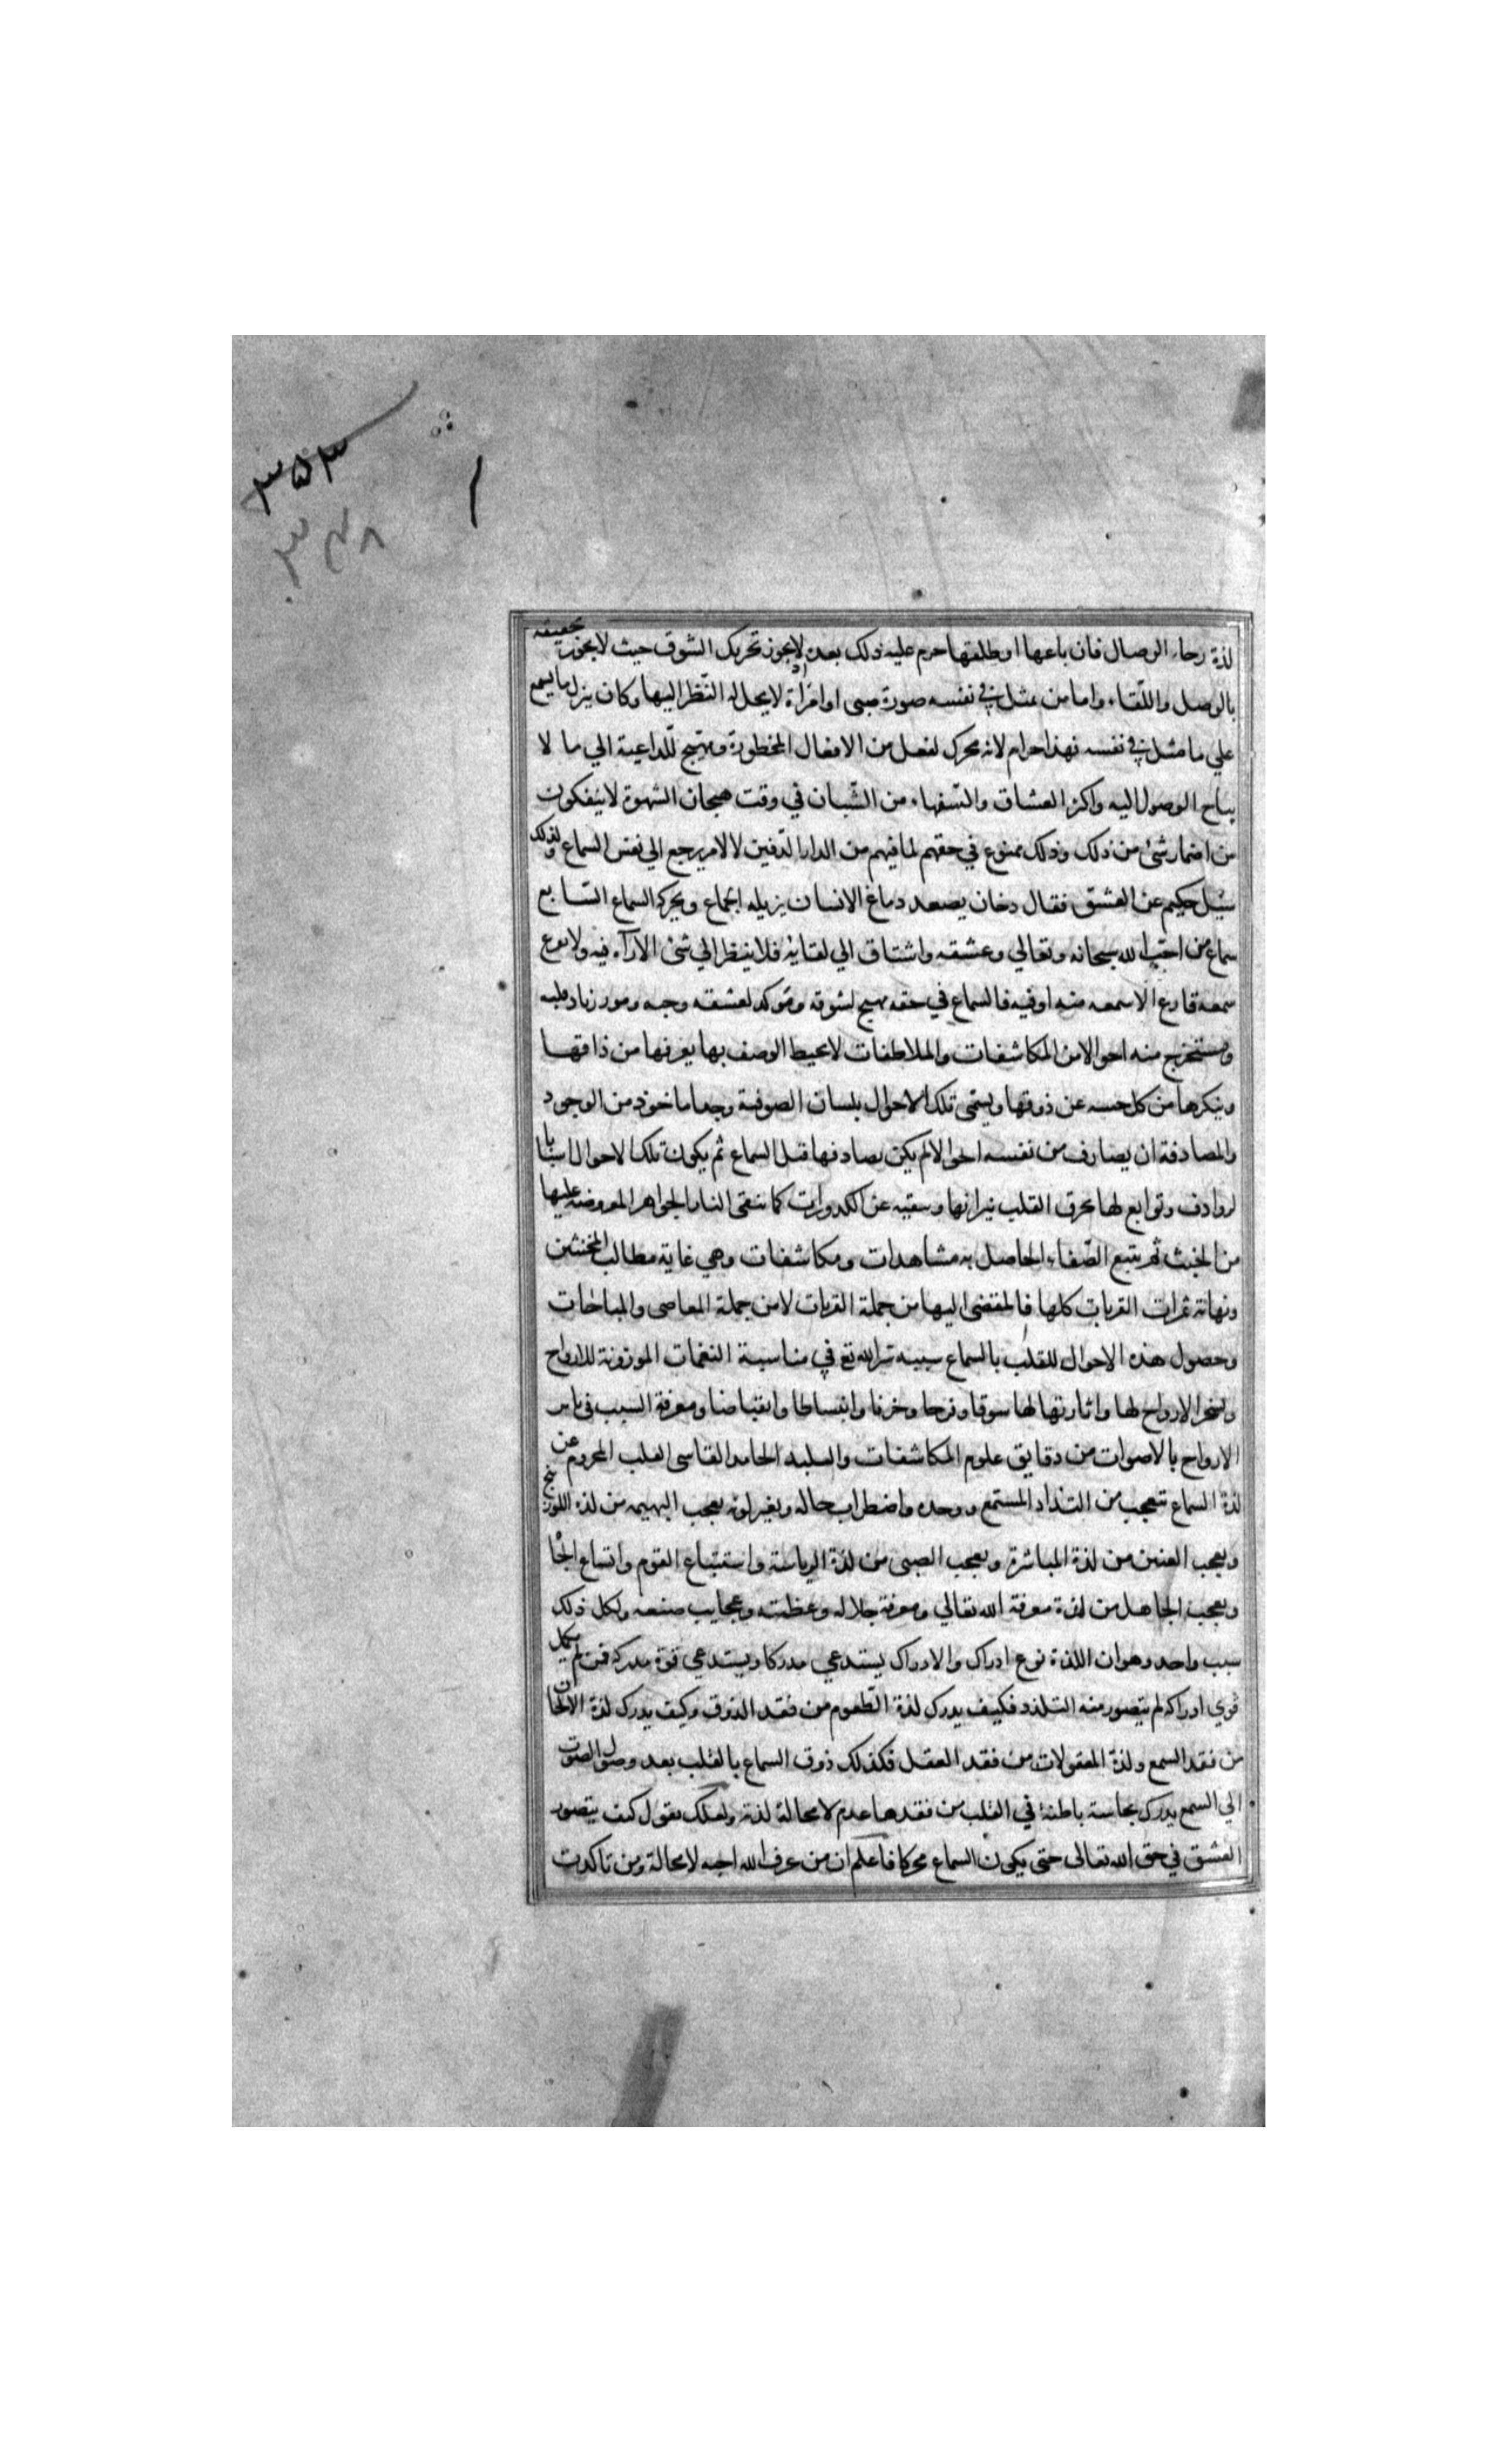 ٣٥٣
٣٤٨
لذة رجاء الوصال فان باعها او طلقها حرم عليه ذلك بعده اذ لا يجوز تحريك الشوق حيث لا يجوز تحقيقه
بالوصل واللّقاء واما من يمثل في نفسه صورة صبى او امرأة لا يحل له النّظر اليها وكان ينزل ما يسمع
علي ما مثل في نفسه فهذا حرام لانه محرك لفعل من الافعال المحظورة ومهيج للّداعية الي ما لا
يباح الوصول اليه واكثر العشاق والسّفهاء من الشّبان في وقت هيجان الشهوة لا ينفكون
من اضمار شئ من ذلك وذلك ممنوع في حقهم لما فيهم من الداء الدّفين لا لامر يرجع الي نفس السماع ولذلك
سئيل حكيم عن العشق فقال دخان يصعد دماغ الانسان يزيله الجماع ويحركه السماع السّابع
سماع من احب الله سبحانه وتعالي وعشقه واشتاق الي لقايه فلا ينظر الي شئ الا رآه فيه ولا يقرع
سمعه قارع الا سمعه منه او فيه فالسماع في حقه مهيج لشوقه وموكد لعشقه وحبه ومور زناد قلبه
ومستخرج منه احوالا من المكاشفات والملاطفات لا يحيط الوصف بها يعرفها من ذاقها
وينكرها من كل حسه عن ذوقها ويسمّى تلك الاحوال بلسان الصوفية وجدا ماخوذ من الوجود
والمصادفة ان يصادف من نفسه احوالا لم يكن يصادفها قبل السماع ثم يكون تلك الاحوال اسبابا
لروادف وتوابع لها تحرق القلب بنيرانها وتنقيه عن الكدورات كما تنقى النار الجواهر المعروضة عليها
من الخبث ثم يتبع الصّفاء الحاصل به مشاهدات ومكاشفات وهي غاية مطالب
ونهاية ثمرات القربات كلها فالمفضى اليها من جملة القربات لا من جملة المعاصى والمباحات
وحصول هذه الاحوال للقلب بالسماع سببه سر الله تع في مناسبة النغمات الموزونة للارواح
وتسخر الارواح لها واثارتها لها شوقا وفرحا وحزنا وانبساطا وانقباضا ومعرفة السبب في تاثر
الارواح بالاصوات من دقايق علوم المكاشفات والبليد الجامد القاسى القلب المحروم عن
لذة السماع تتعجب من التذاد المستمع ووجده واضطراب حاله وتغير لونه تعجب البهيمه من لذة اللوزينج
وتعجب العنين من لذة المباشرة وتعجب الصبى من لذة الرياسة واستتباع القوم واتساع الجاه
وتعجب الجاهل من لذة معرفة الله تعالي ومعرفة جلاله وعظمته وعجايب صنعه ولكل ذلك
سبب واحد وهو ان اللذة نوع ادراك والادراك يستدعي مدركا ويستدعي قوة مدركه فمن لم يكمل
قوي ادراكه لم يتصور منه التلذد فكيف يدرك لذة الطّعوم من فقد الذوق وكيف يدرك لذة الالحان
من فقد السمع ولذة المعقولات من فقد العقل فكذلك ذوق السماع بالقلب بعد وصول الصوت
الي السمع يدرك بحاسة باطنة في القلب من فقدها عدم لا محالة لذته ولعلك تقول كيف يتصور
العشق في حق الله تعالى حتى يكون السماع محركا فاعلم ان من عرف الله احبه لا محالة ومن تاكدت